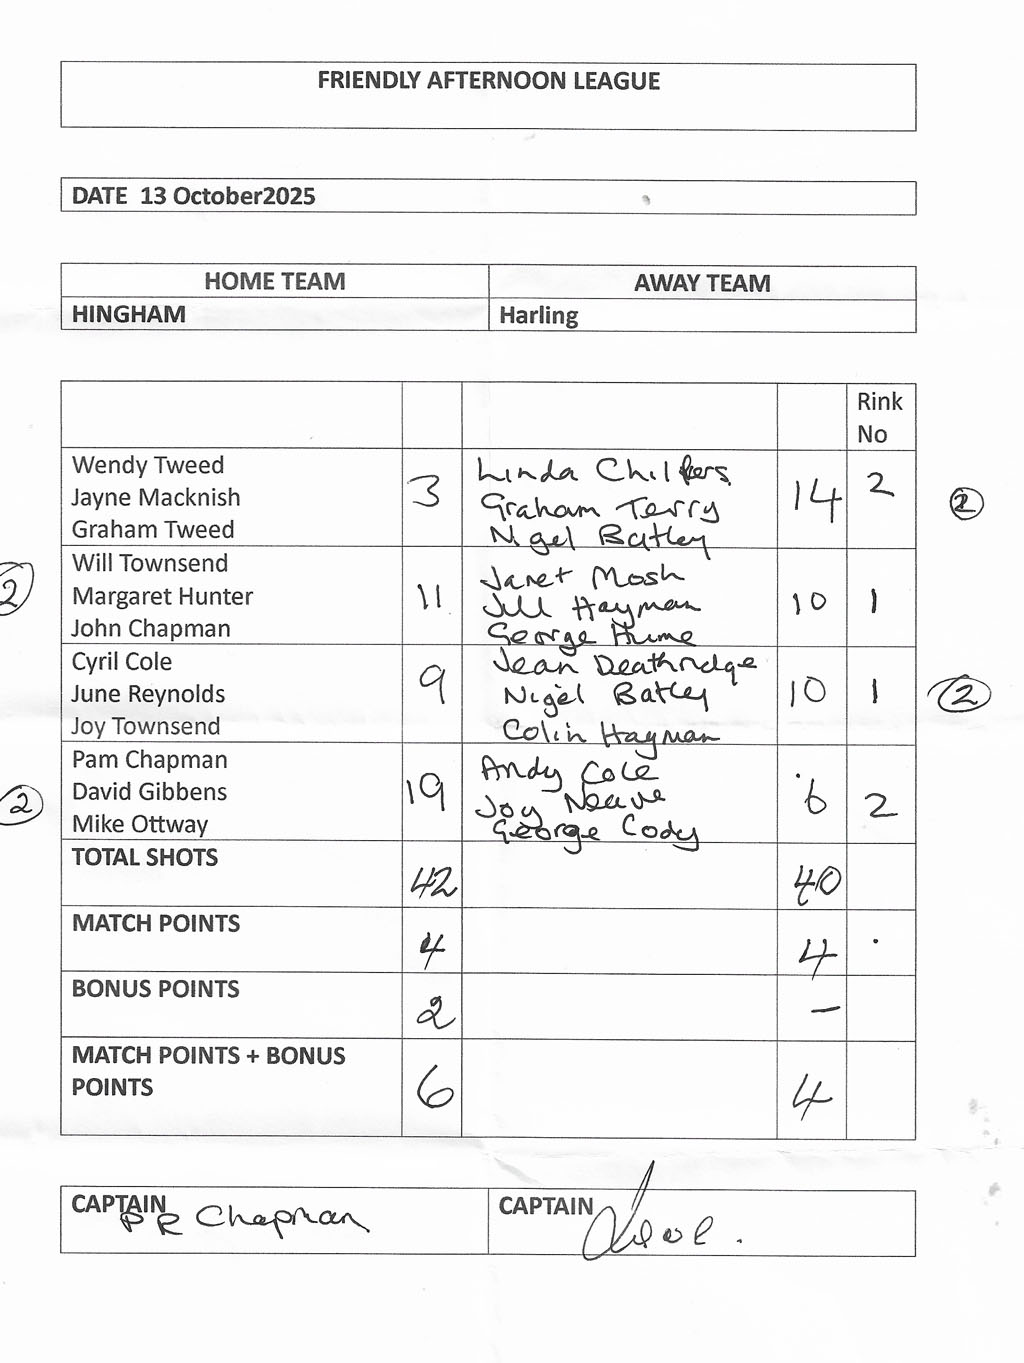 FRIENDLY AFTERNOON LEAGUE
DATE 13 October2025
HOME TEAM AWAY TEAM
HINGHAM Harling
Rink No
Wendy Tweed 3 Linda Chilvers 14 2 2
Jayne Macknish Graham Terry
Graham Tweed Nigel Batley
Will Townsend Janet Mosh
2 Margaret Hunter 11 Jill Hayman 10 1
John Chapman George Hume
Cyril Cole Jean Deathridge
June Reynolds 9 Nigel Batley 10 1 2
Joy Townsend Colin Hayman
Pam Chapman Andy Cole
2 David Gibbens 19 Joy Neave 6 2
Mike Ottway George Cody
TOTAL SHOTS 42 40
MATCH POINTS 4 4
BONUS POINTS 2 –
MATCH POINTS + BONUS
POINTS 6 4
CAPTAIN P R Chapman CAPTAIN